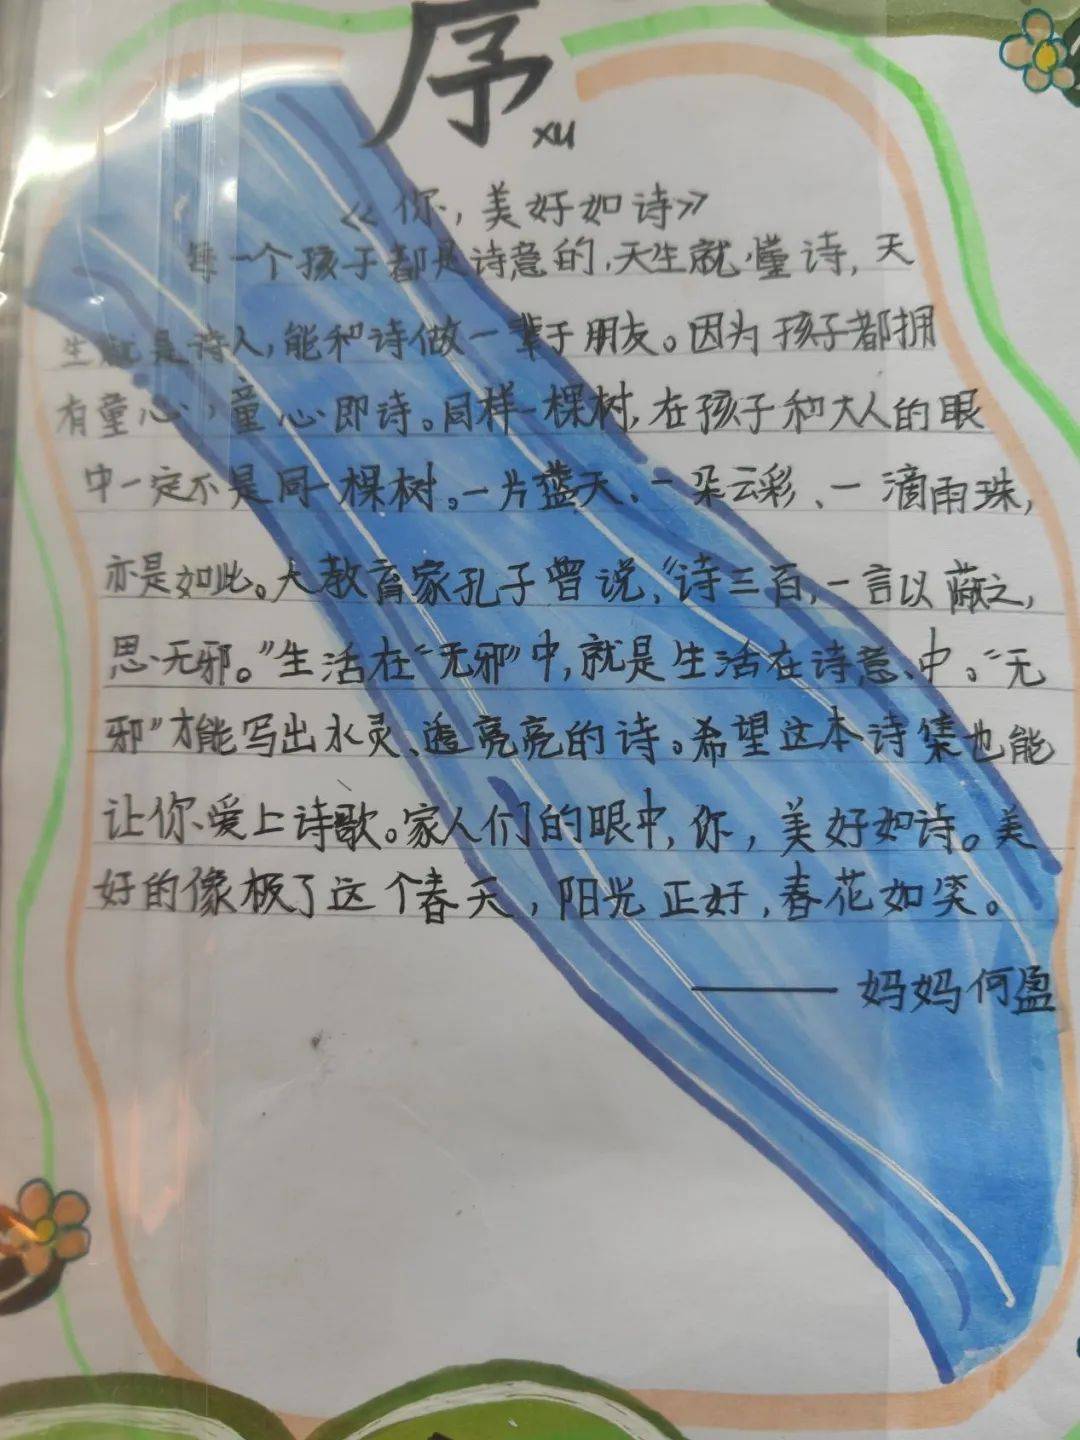 序
xu
《你,美好如诗》
每一个孩子都是诗意的,天生就懂诗,天
生就是诗人,能和诗做一辈子朋友。因为孩子都拥
有童心,童心即诗。同样一棵树,在孩子和大人的眼
中一定不是同一棵树。一片蓝天、一朵云彩、一滴雨珠,
亦是如此。大教育家孔子曾说,“诗三百,一言以蔽之,
思无邪。”生活在“无邪”中,就是生活在诗意中。“无
邪”才能写出水灵、透亮亮的诗。希望这本诗集也能
让你爱上诗歌。家人们的眼中,你,美好如诗。美
好的像极了这个春天,阳光正好,春花如笑。
——妈妈何盈